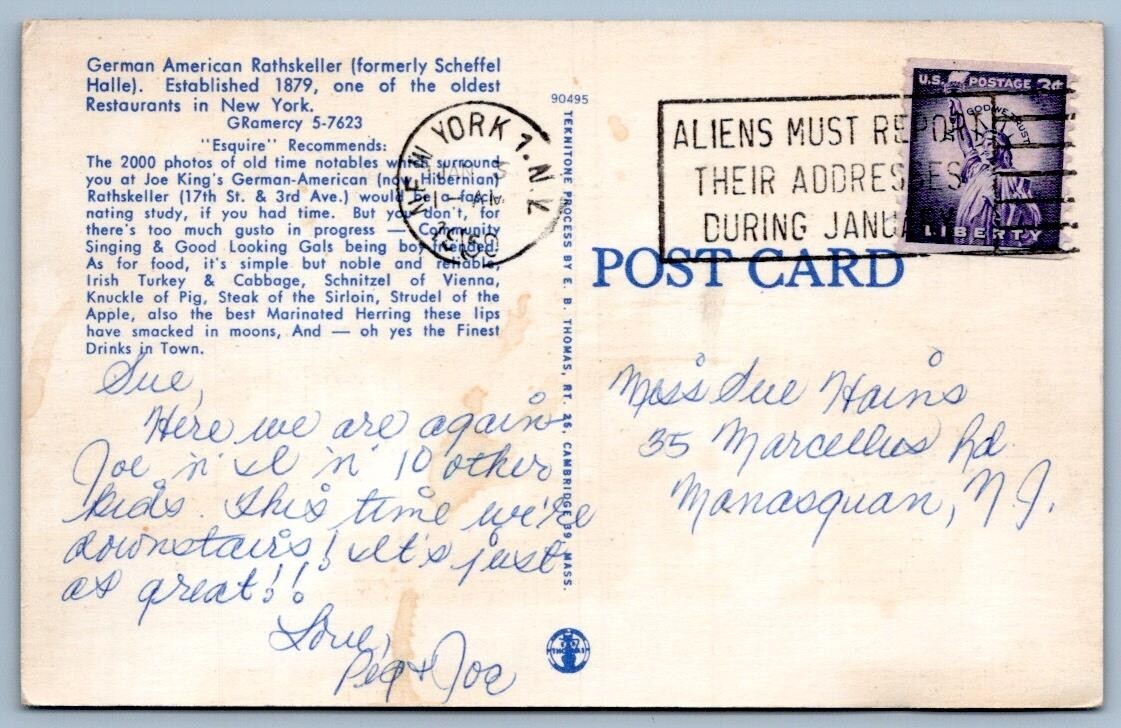 German American Rathskeller (formerly Scheffel
Halle). Established 1879, one of the oldest
Restaurants in New York.
GRamercy 5-7623
"Esquire" Recommends:
The 2000 photos of old time notables which surround
you at Joe King's German-American (now Hibernian)
Rathskeller (17th St. & 3rd Ave.) would be a fasci-
nating study, if you had time. But you don't, for
there's too much gusto in progress — Community
Singing & Good Looking Gals being boy friended.
As for food, it's simple but noble and reliable,
Irish Turkey & Cabbage, Schnitzel of Vienna,
Knuckle of Pig, Steak of the Sirloin, Strudel of the
Apple, also the best Marinated Herring these lips
have smacked in moons, And — oh yes the Finest
Drinks in Town.
Sue,
Here we are again-
Joe 'n' I 'n' 10 other
kids. This time we're
downstairs! It's just
as great!!
Love,
Peg & Joe
90495
TEKNITONE PROCESS BY E. B. THOMAS, RT. 25, CAMBRIDGE 39, MASS.
THOMAS
NEW YORK 1, N.Y.
JAN 3
ALIENS MUST REPORT
THEIR ADDRESSES
DURING JANUARY
U.S. POSTAGE 3¢
IN GOD WE TRUST
LIBERTY
POST CARD
Miss Sue Hains
35 Marcellus Rd.
Manasquan, N.J.